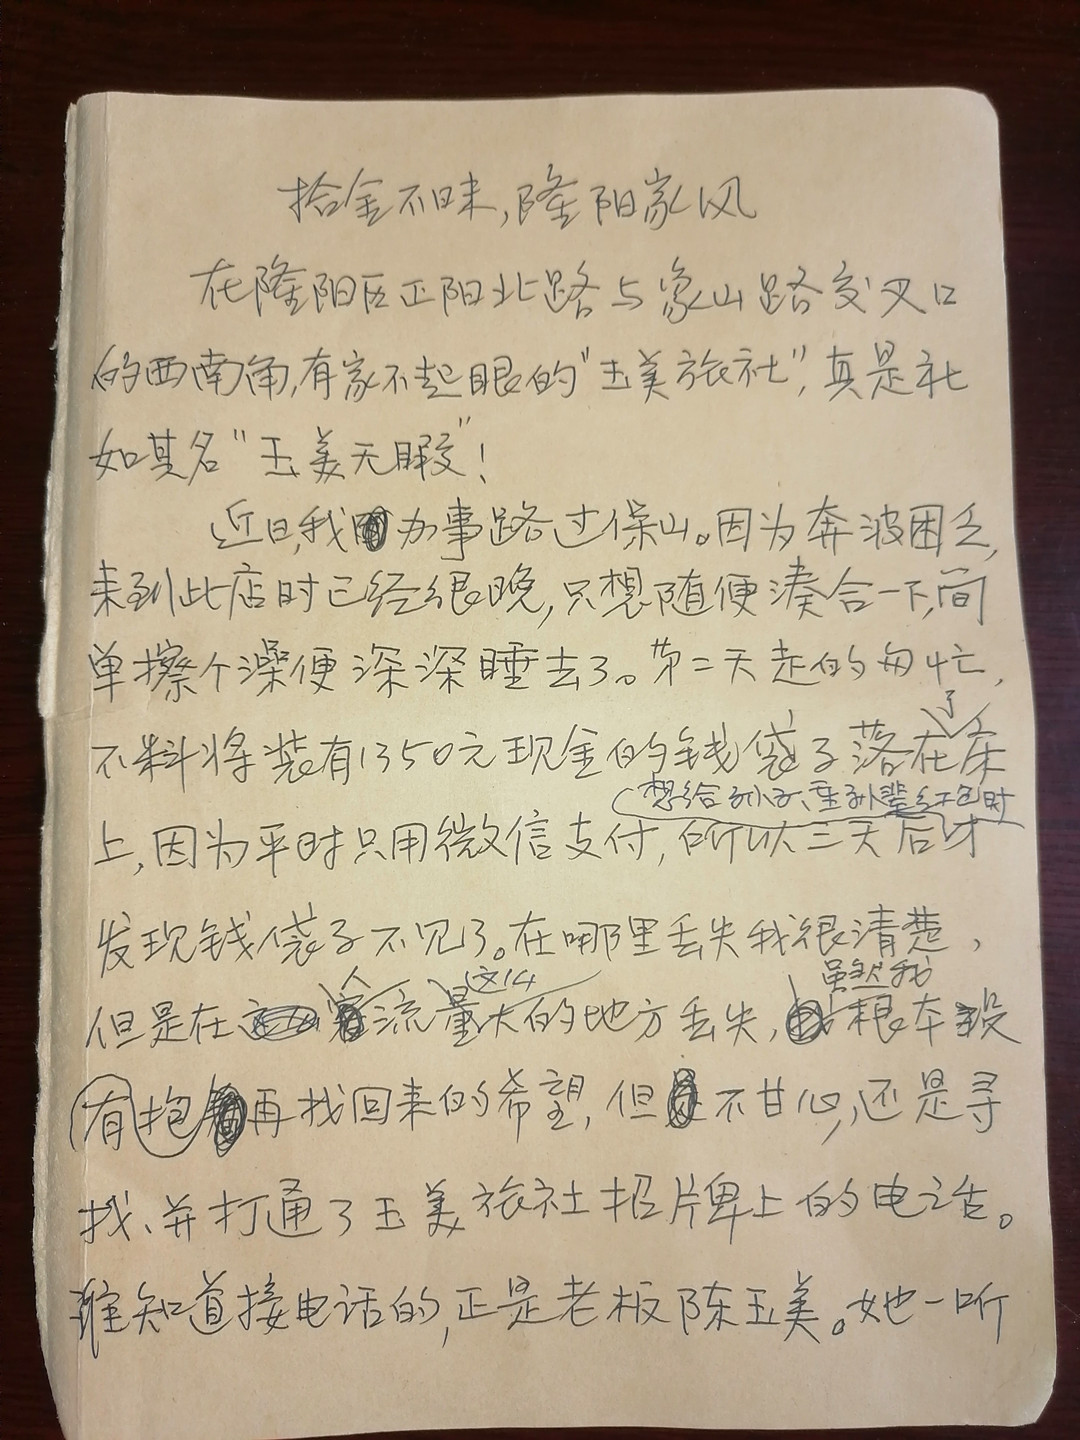 拾金不昧,隆阳家风
在隆阳区正阳北路与象山路交叉口
的西南角,有家不起眼的"玉美旅社",真是社
如其名"玉美无暇"!
近日,我办事路过保山。因为奔波困乏,
来到此店时已经很晚,只想随便凑合一下,简
单擦个澡便深深睡去了。第二天走的匆忙,
了
不料将装有1350元现金的钱袋子落在床
想给孙子、重孙辈红包时
上,因为平时只用微信支付,所以三天后才
发现钱袋子不见了。在哪里丢失我很清楚,
人 这样 虽然我
但是在流量大的地方丢失,根本没
有抱再找回来的希望,但不甘心,还是寻
找、并打通了玉美旅社招牌上的电话。
谁知道接电话的,正是老板陈玉美。她一听